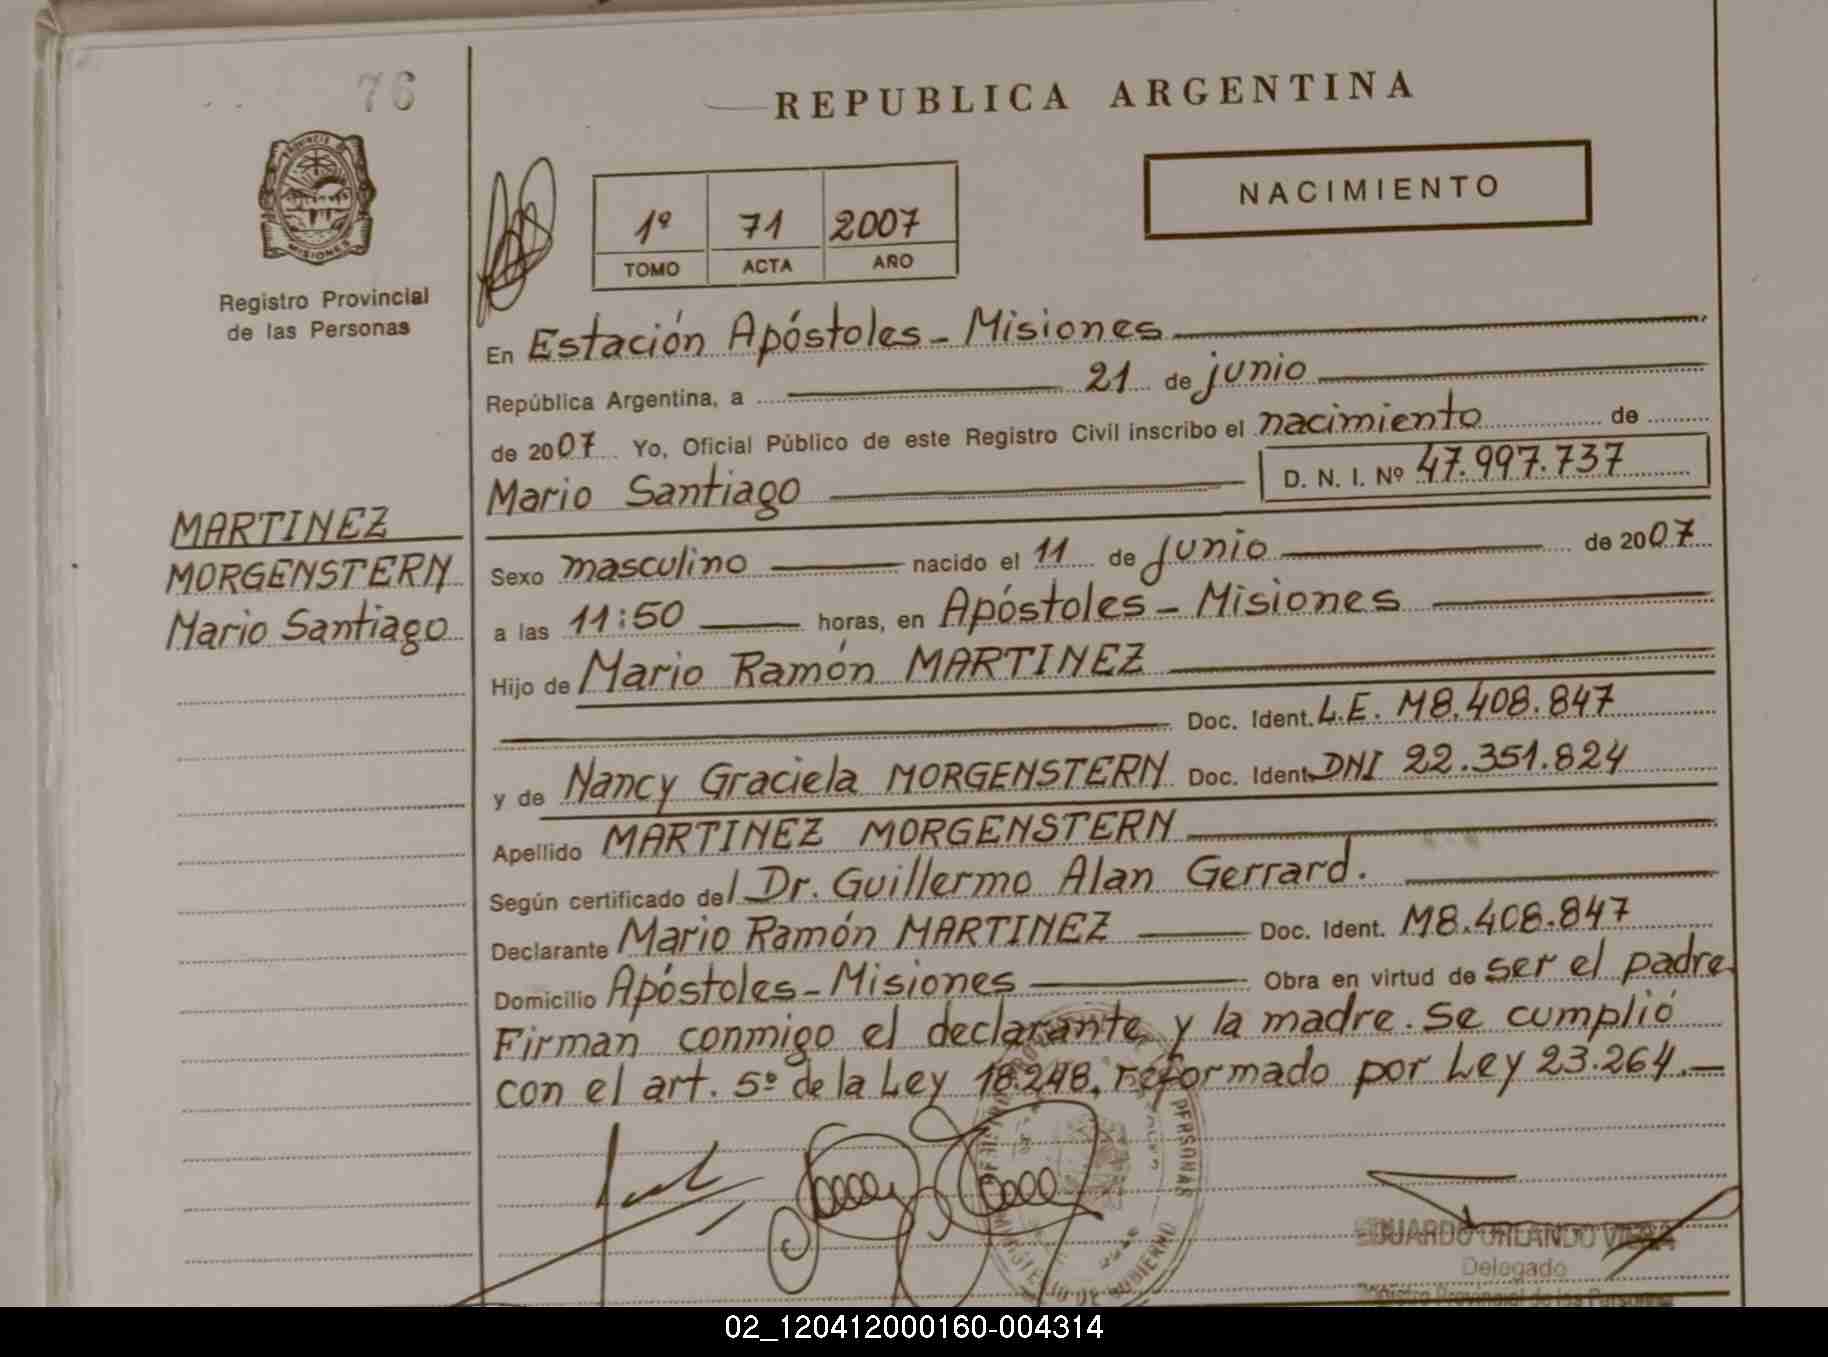 76
REPUBLICA ARGENTINA
PROVINCIA DE
MISIONES
Registro Provincial
de las Personas
1º 71 2007
TOMO ACTA AÑO
NACIMIENTO
En Estación Apóstoles - Misiones
República Argentina, a 21 de junio
de 2007 Yo, Oficial Público de este Registro Civil inscribo el nacimiento de
Mario Santiago D. N. I. Nº 47.997.737
MARTINEZ
MORGENSTERN
Mario Santiago
Sexo masculino nacido el 11 de junio de 2007
a las 11:50 horas, en Apóstoles - Misiones
Hijo de Mario Ramón MARTINEZ
Doc. Ident. L.E. M8.408.847
y de Nancy Graciela MORGENSTERN Doc. Ident. DNI 22.351.824
Apellido MARTINEZ MORGENSTERN
Según certificado del Dr. Guillermo Alan Gerrard.
Declarante Mario Ramón MARTINEZ Doc. Ident. M8.408.847
Domicilio Apóstoles - Misiones Obra en virtud de ser el padre
Firman conmigo el declarante y la madre. Se cumplió
con el art. 5º de la Ley 18.248, reformado por Ley 23.264.-
PERSONAS
MINISTERIO DE GOBIERNO
EDUARDO ORLANDO VIERA
Delegado
Registro Provincial de las Personas
02_120412000160-004314